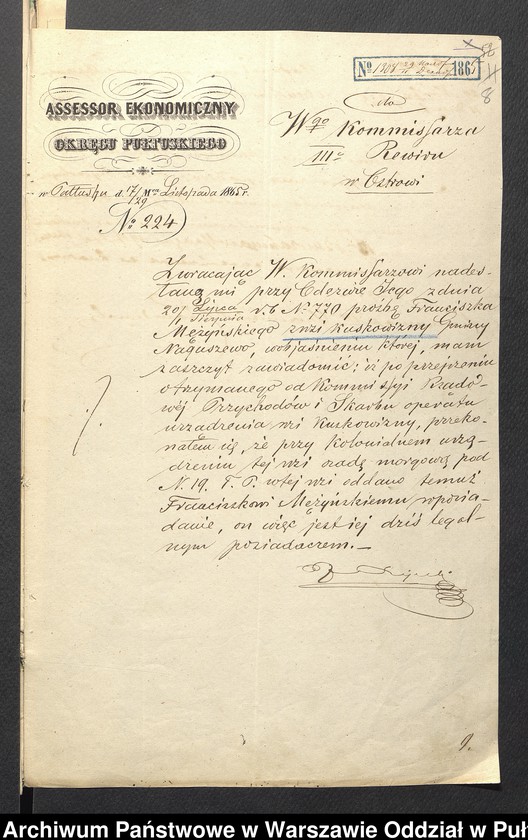 Nº 1307 1865
58
8
ASSESSOR EKONOMICZNY
OKRĘGU PUŁTUSKIEGO
w Pułtusku d. 17/29 Mca Listopada 1865 r.
Nº 224
do
Wgo Kommissarza
IIIo Rewiru
w Ostrowi
Zwracając W. Kommissarzowi nades-
łaną mi przy Odezwie Jego z dnia
20/1 Lipca/Sierpnia r. b. Nº 770 prośbę Franciszka
Mężyńskiego z wsi Kuskowizny Gminy
Naguszewo, w objaśnieniu której, mam
zaszczyt zawiadomić; iż po przejrzeniu
otrzymanego od Kommissyi Rządo-
wéj Przychodów i Skarbu operatu
urządzenia wsi Kuskowizny, przeko-
nałem się, że przy kolonialnem urzą-
dzeniu tej wsi osadę morgową pod
N. 19. T. P. w tej wsi oddano temuż
Franciszkowi Mężyńskiemu w posia-
danie, on więc jest jej dziś legal-
nym posiadaczem.—
9.
Archiwum Państwowe w Warszawie Oddział w Puł